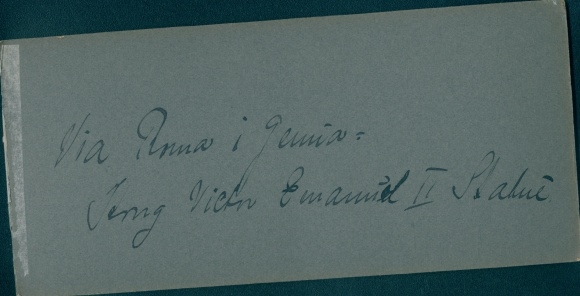 Via Roma i Genua=
Victor Emanuel II Statue